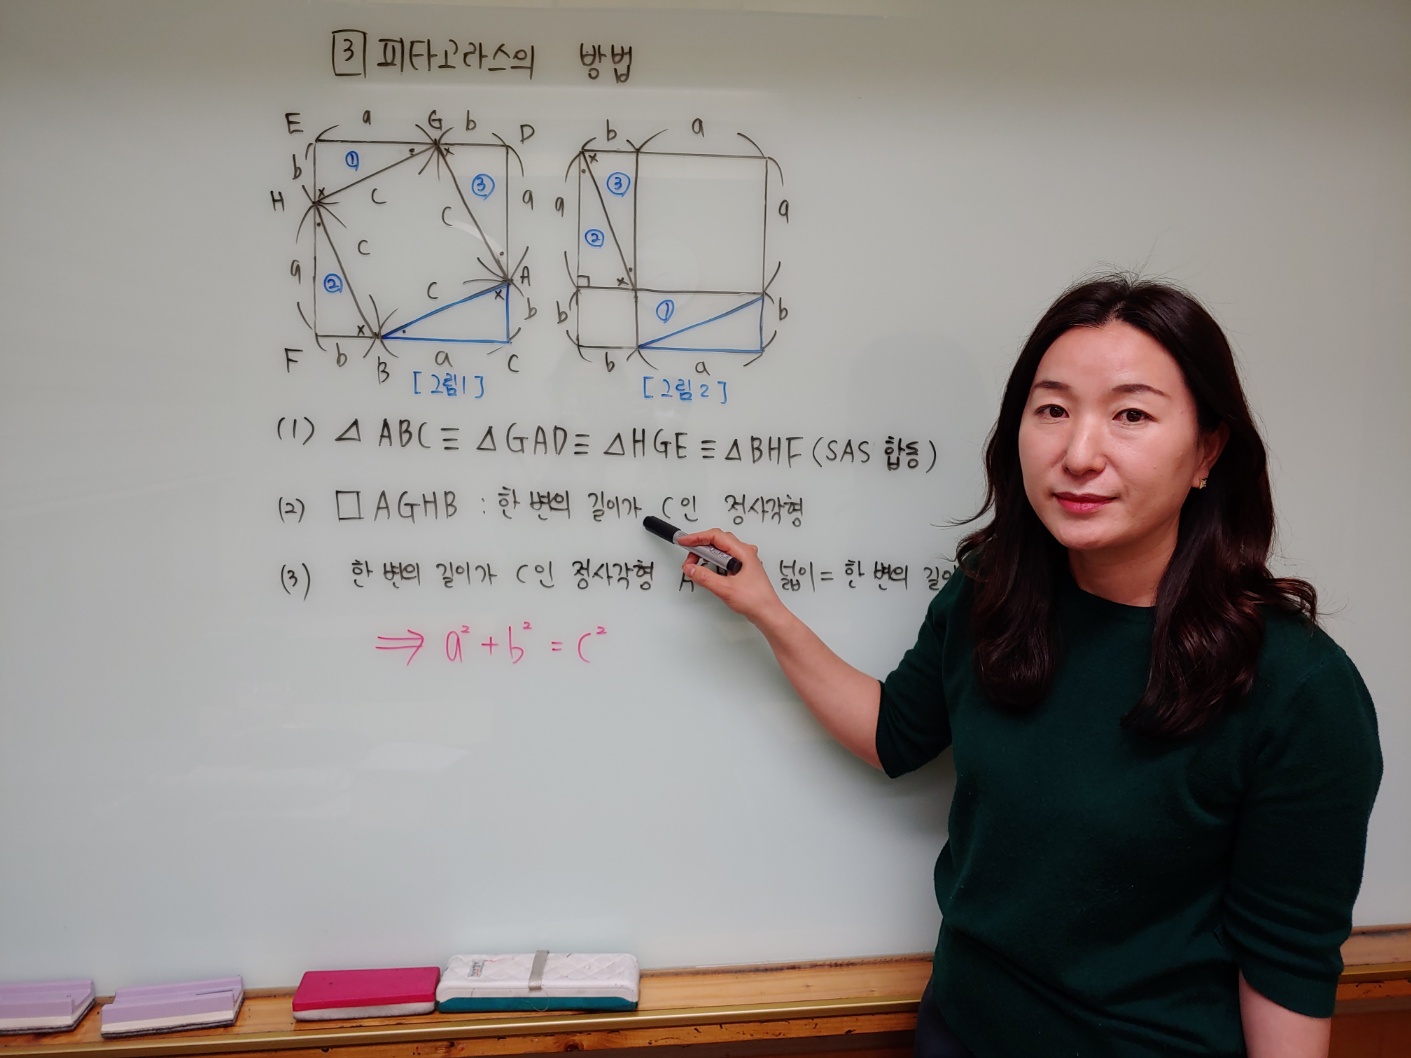 3 피타고라스의 방법
E a G b D
b ① ③
H c c a
c
a ② c A
b
F b B a C
[그림1]
b a
③
a ② a
① b
b
b a
[그림2]
(1) △ABC≡△GAD≡△HGE≡△BHF (SAS 합동)
(2) □AGHB : 한 변의 길이가 C인 정사각형
(3) 한 변의 길이가 C인 정사각형 넓이 = 한 변의 길이
⇒ a²+b²=c²